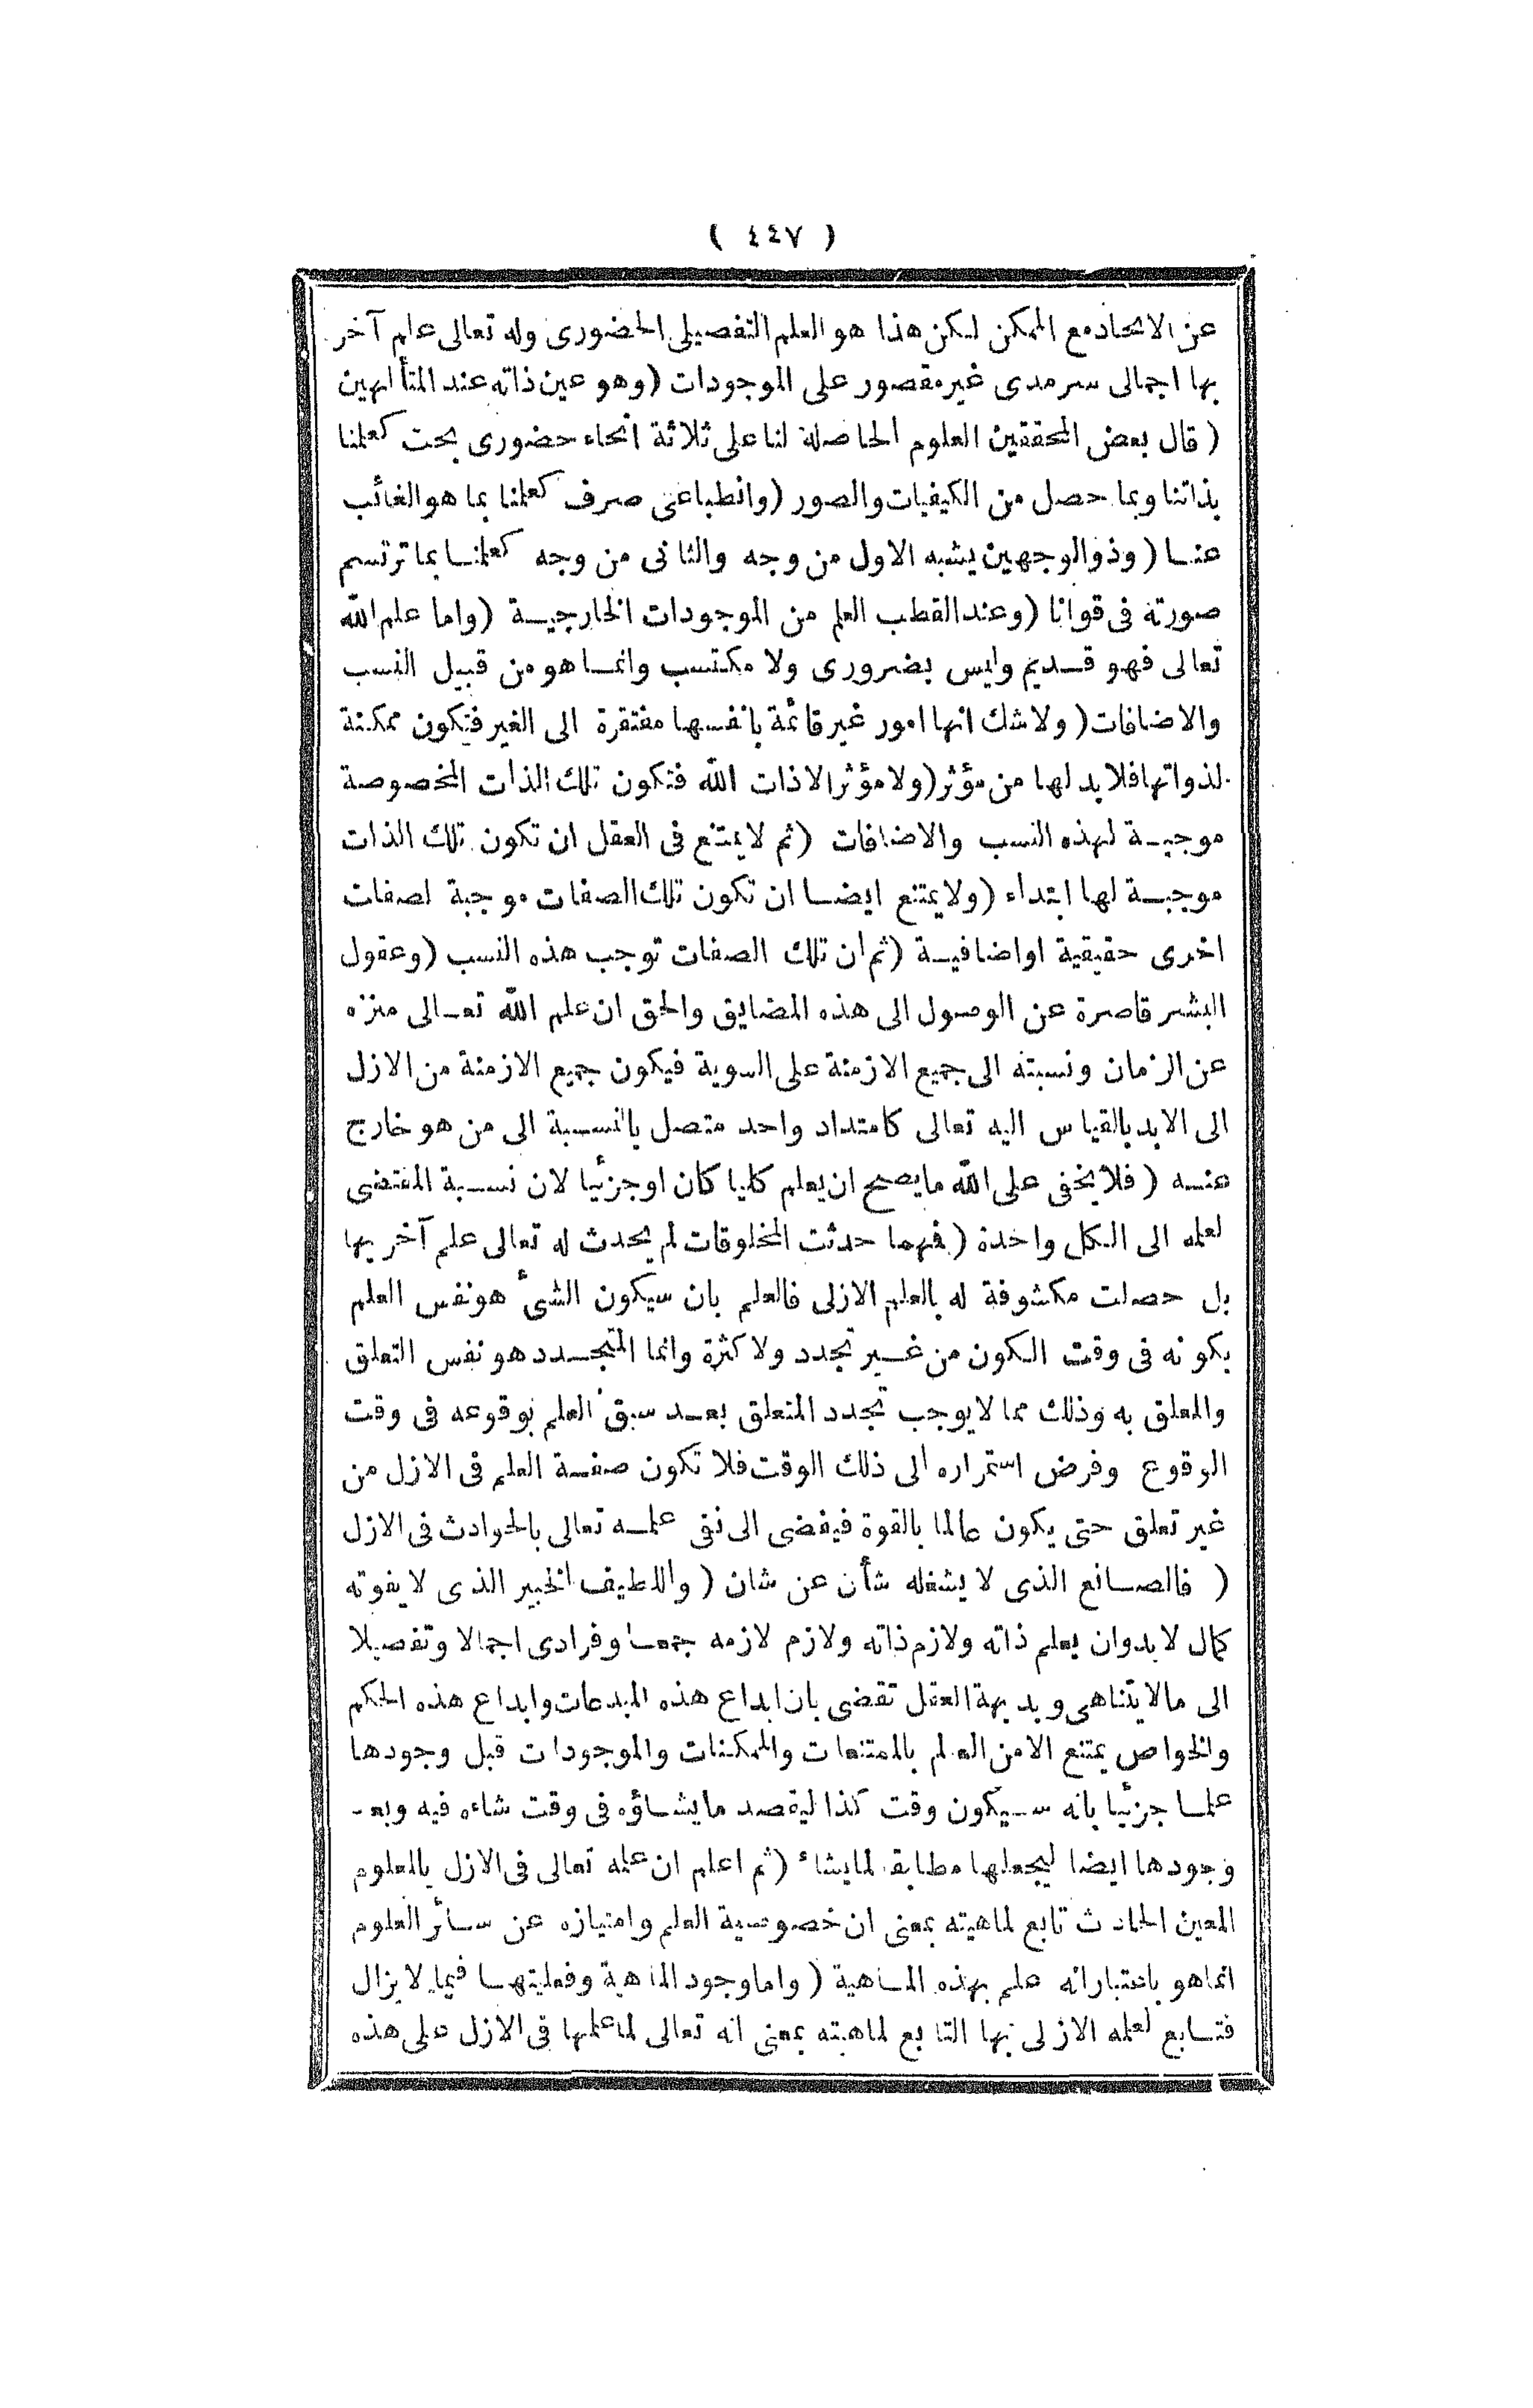 ( ٤٤٧ )
عن الاتحاد مع الممكن لكن هذا هو العلم التفصيلى الحضورى وله تعالى علم آخر
بها اجمالى سرمدى غير مقصور على الموجودات (وهو عين ذاته عند المتألهين
( قال بعض المحققين العلوم الحاصلة لنا على ثلاثة انحاء حضورى بحت كعلمنا
بذاتنا وبما حصل من الكيفيات والصور (وانطباعى صرف كعلمنا بما هو الغائب
عنا (وذو الوجهين يشبه الاول من وجه والثانى من وجه كعلمنا بما ترتسم
صورته فى قوانا (وعند القطب العلم من الموجودات الخارجية (واما علم الله
تعالى فهو قديم وليس بضرورى ولا مكتسب وانما هو من قبيل النسب
والاضافات (ولا شك انها امور غير قائمة بانفسها مفتقرة الى الغير فتكون ممكنة
لذواتها فلا بد لها من مؤثر (ولا مؤثر الا ذات الله فتكون تلك الذات المخصوصة
موجبة لهذه النسب والاضافات (ثم لا يمتنع فى العقل ان تكون تلك الذات
موجبة لها ابتداء (ولا يمتنع ايضا ان تكون تلك الصفات موجبة لصفات
اخرى حقيقية او اضافية (ثم ان تلك الصفات توجب هذه النسب (وعقول
البشر قاصرة عن الوصول الى هذه المضايق والحق ان علم الله تعالى منزه
عن الزمان ونسبته الى جميع الازمنة على السوية فيكون جميع الازمنة من الازل
الى الابد بالقياس اليه تعالى كامتداد واحد متصل بالنسبة الى من هو خارج
عنه (فلا يخفى على الله ما يصح ان يعلم كليا كان او جزئيا لان نسبة المقتضى
لعلمه الى الكل واحدة (فهما حدثت المخلوقات لم يحدث له تعالى علم آخر بها
بل حصلت مكشوفة له بالعلم الازلى فالعلم بان سيكون الشئ هو نفس العلم
بكونه فى وقت الكون من غير تجدد ولا كثرة وانما المتجدد هو نفس التعلق
والمعلق به وذلك مما لا يوجب تجدد المتعلق بعد سبق العلم بوقوعه فى وقت
الوقوع وفرض استمراره الى ذلك الوقت فلا تكون صفة العلم فى الازل من
غير تعلق حتى يكون عالما بالقوة فيفضى الى نفى علمه تعالى بالحوادث فى الازل
( فالصانع الذى لا يشغله شأن عن شان (واللطيف الخبير الذى لا يفوته
كمال لا بد وان يعلم ذاته ولازم ذاته ولازم لازمه جمعا وفرادى اجمالا وتفصيلا
الى ما لا يتناهى وبديهة العقل تقضى بان ابداع هذه المبدعات وابداع هذه الحكم
والخواص يمتنع الا من العلم بالممتنعات والممكنات والموجودات قبل وجودها
علما جزئيا بانه سيكون وقت كذا ليقصد ما يشاؤه فى وقت شاءه فيه وبعد
وجودها ايضا ليجعلها مطابقة لما يشاء (ثم اعلم ان علمه تعالى فى الازل بالمعلوم
المعين الحادث تابع لماهيته بمعنى ان خصوصية العلم وامتيازه عن سائر العلوم
انما هو باعتبار انه علم بهذه الماهية (واما وجود الماهية وفعليتها فيما لا يزال
فتابع لعلمه الازلى بها التابع لماهيته بمعنى انه تعالى لما علمها فى الازل على هذه